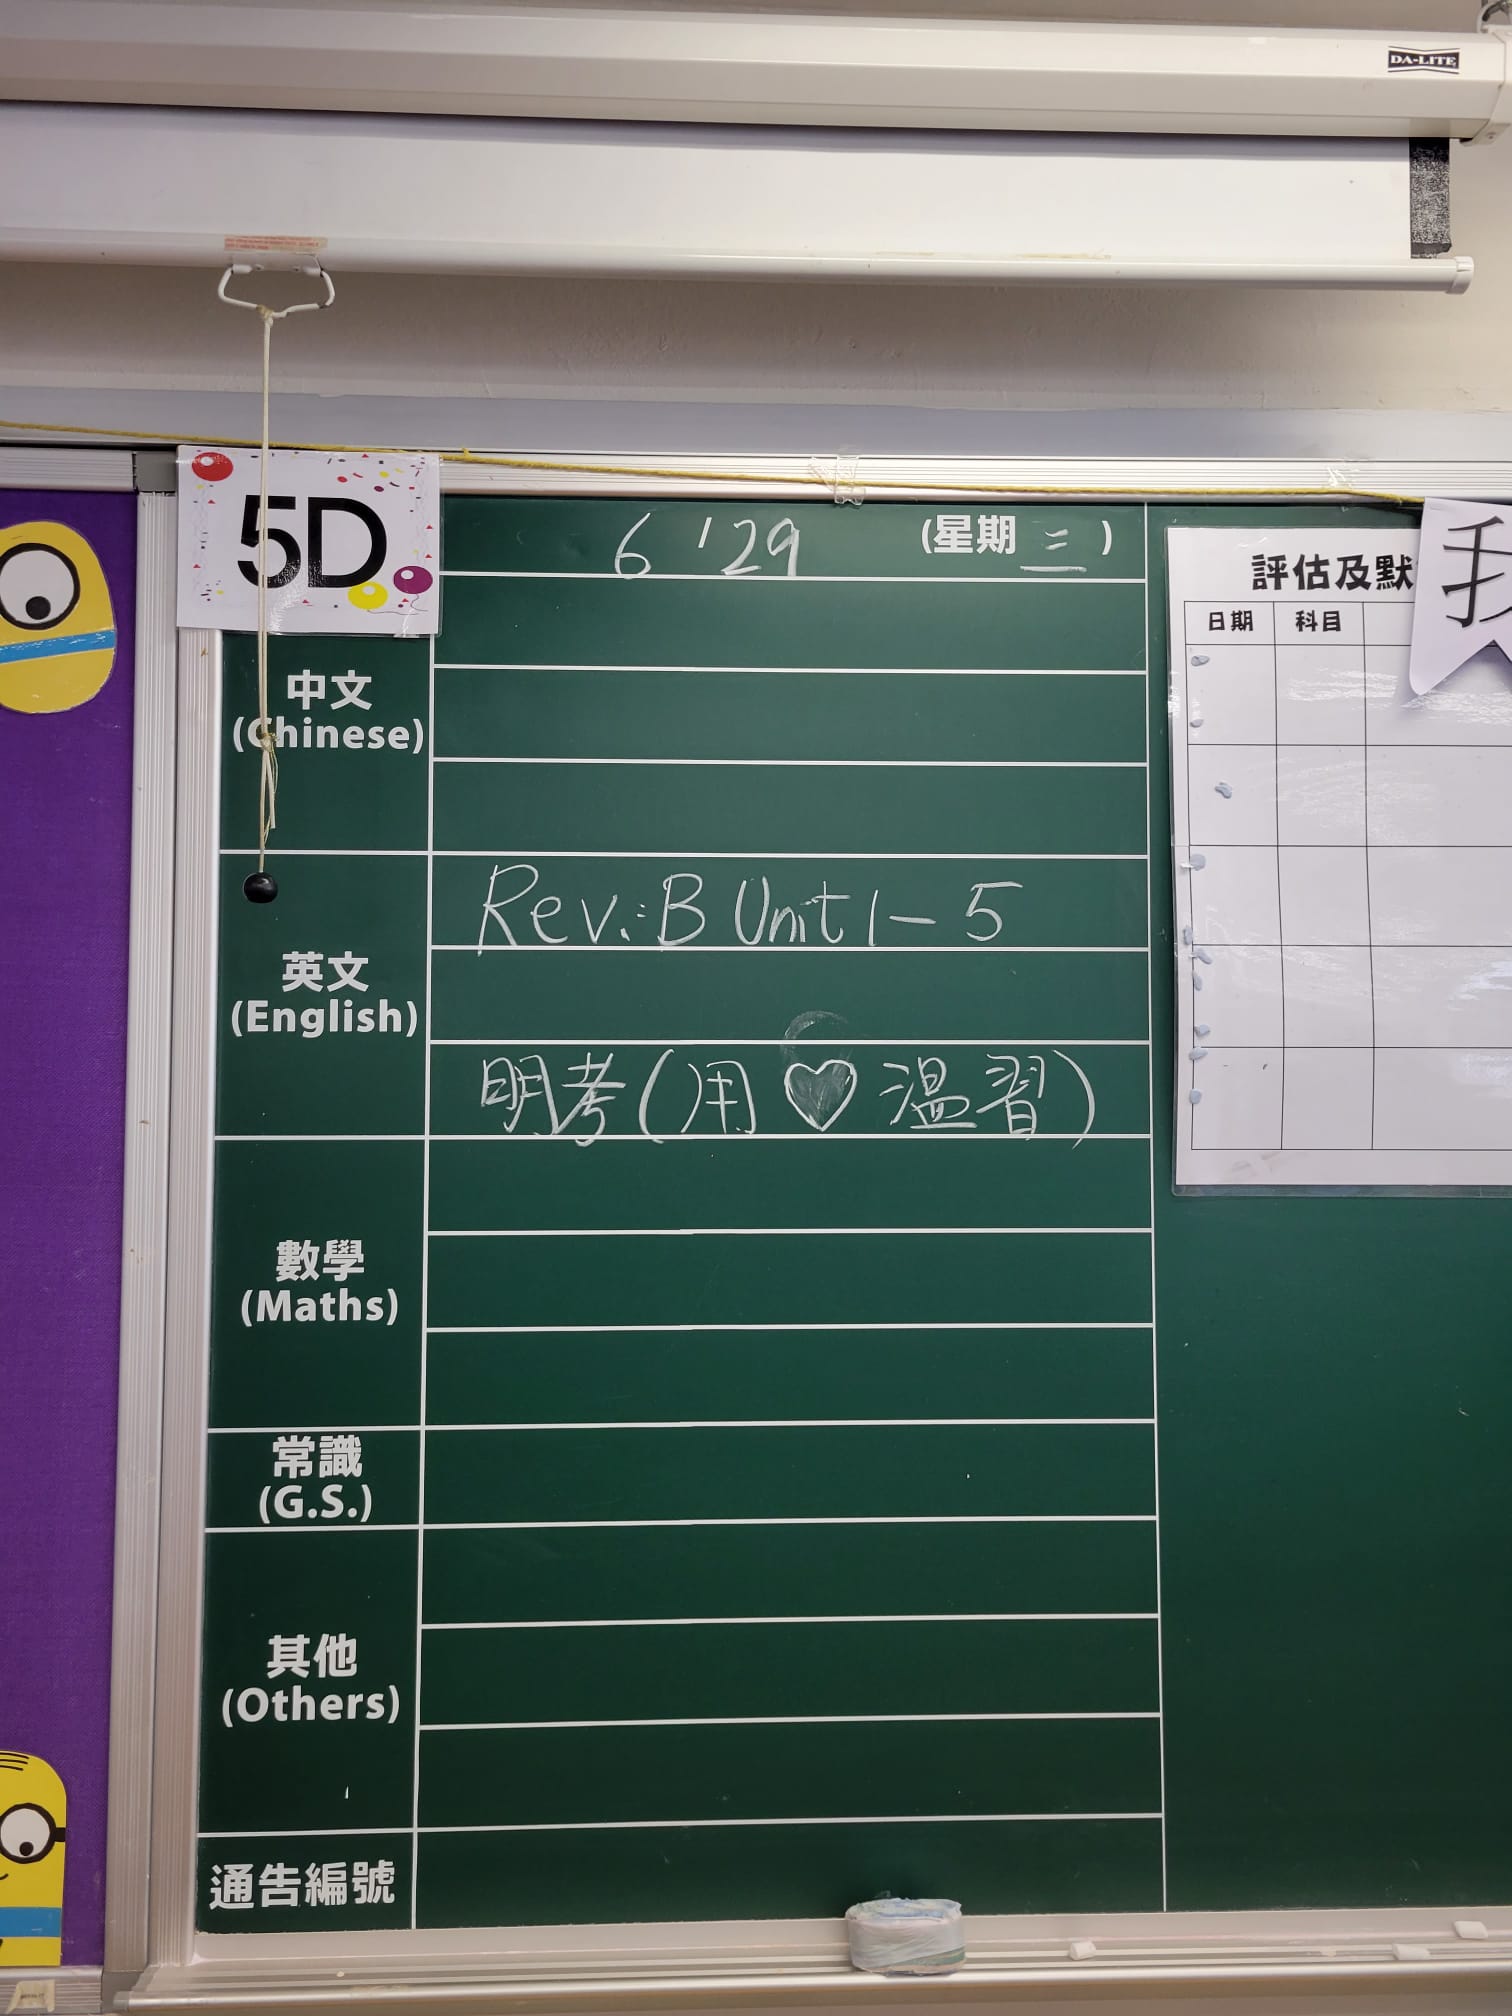 DA-LITE
5D
6 '29 (星期 三 )
中文
(Chinese)
英文
(English)
Rev.: B Unit 1 - 5
明考(用 ♡ 温習)
數學
(Maths)
常識
(G.S.)
其他
(Others)
通告編號
評估及默
日期 科目